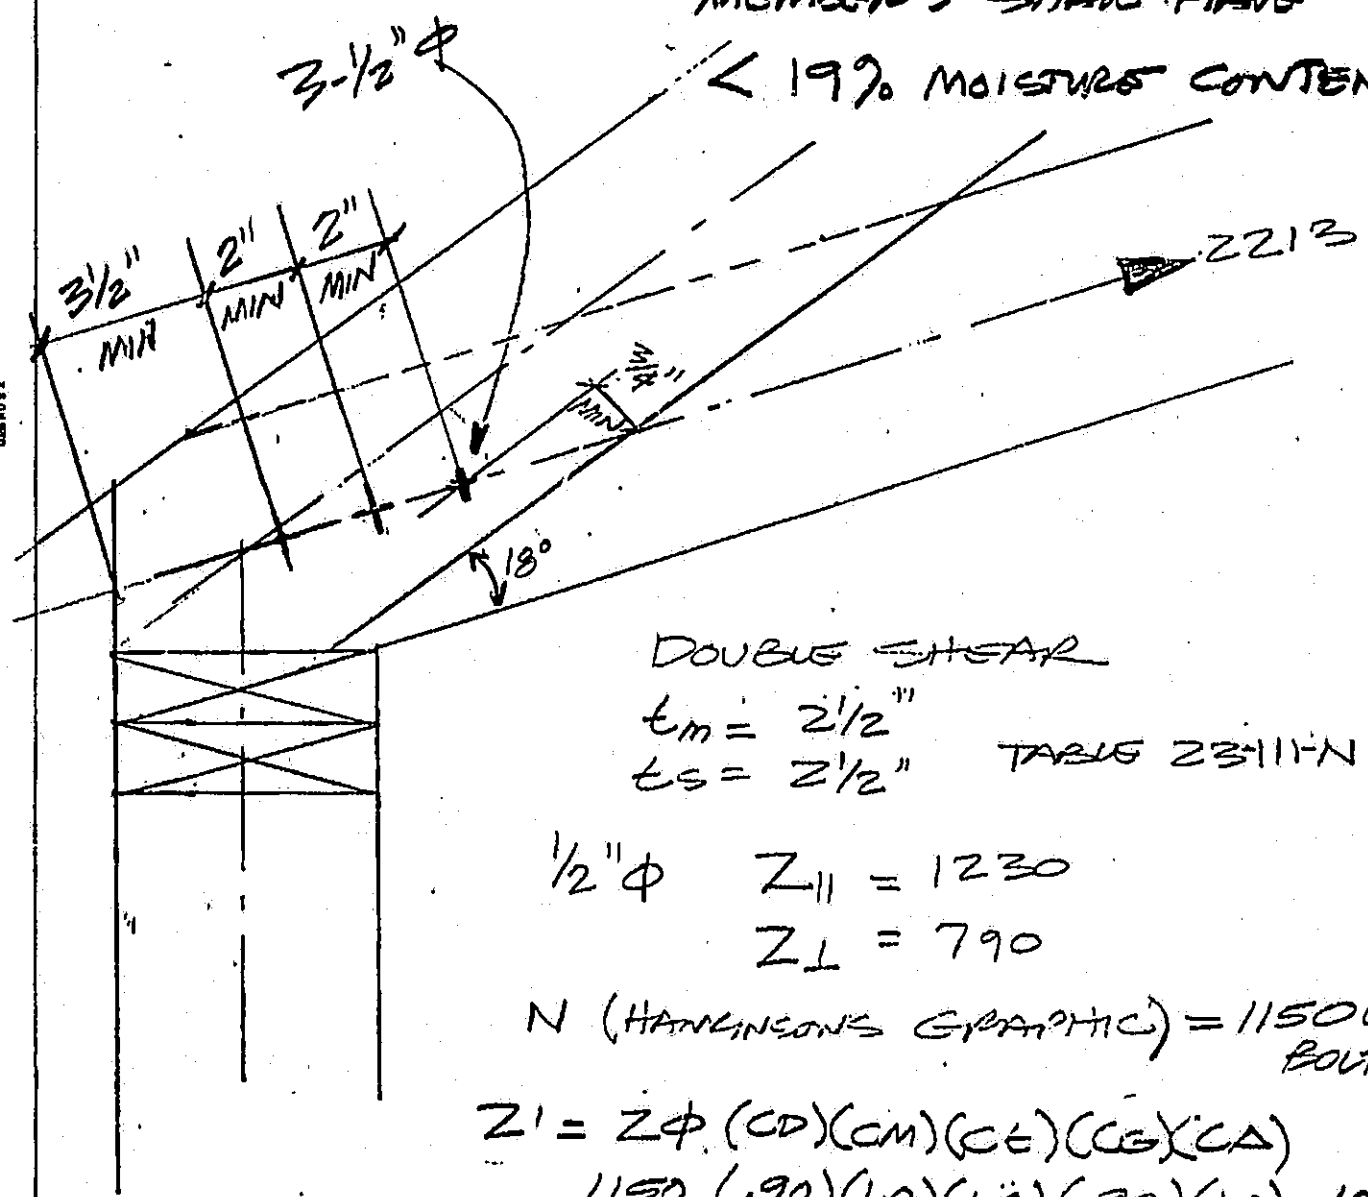 MEMBERS SHALL HAVE
< 19% MOISTURE CONTEN
3-1/2" Φ
3 1/2" MIN
2" MIN
2" MIN
2213
MIN
18°
DOUBLE SHEAR
tm = 2 1/2"
ts = 2 1/2" TABLE 23-III-N
1/2" Φ Z|| = 1230
Z⊥ = 790
N (HANKINSONS GRAPHIC) = 1150
BOL
Z' = ZΦ (CD)(CM)(Ct)(CG)(CΔ)
1150 (.90)(1.0)